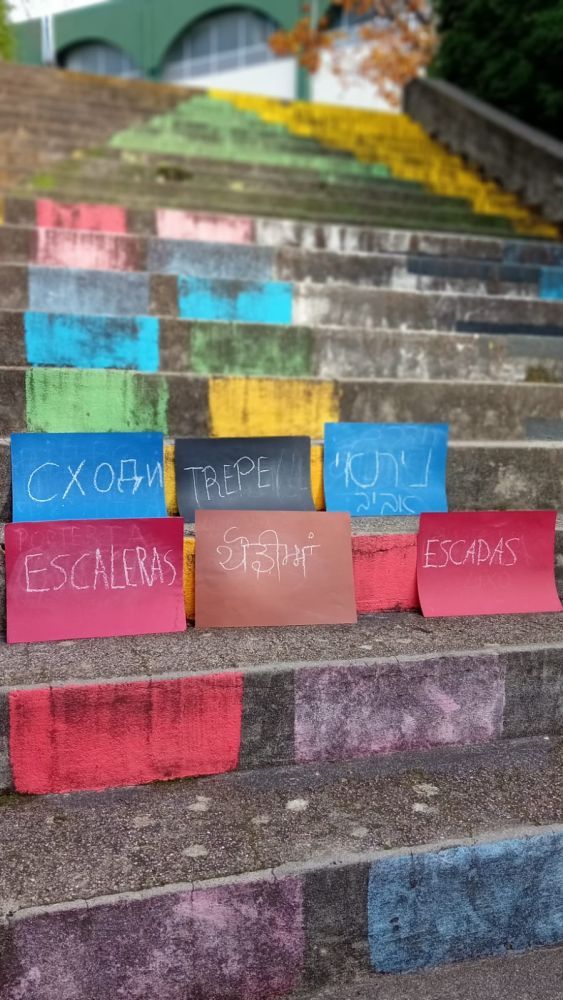 СХОДИ
TREPE
אביב
ESCALERAS
ਪੌੜੀਆਂ
ESCADAS